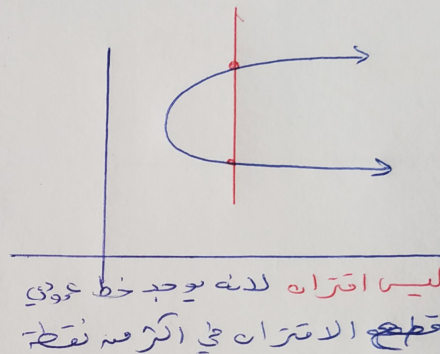 ليس اقتران لانه يوجد خط عمودي
قطع الاقتران في اكثر من نقطة